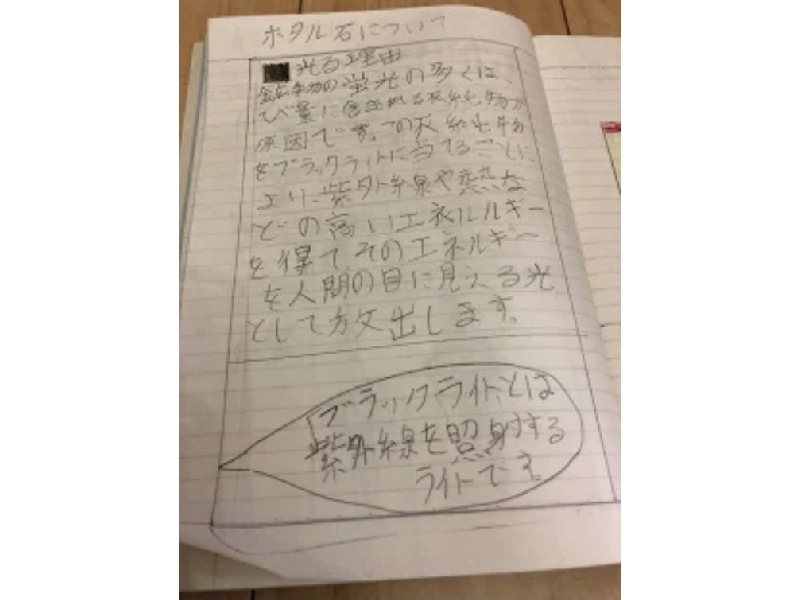 ホタル石について
光る理由
鉱物の蛍光の多くは、
び量に含まれる不純物が
原因です。この不純物
をブラックライトに当てることに
より、紫外線や熱な
どの高いエネルルギー
を得てそのエネルギー
を人間の目に見える光
として放出します。
「ブラックライトとは
紫外線を照射する
ライトです。